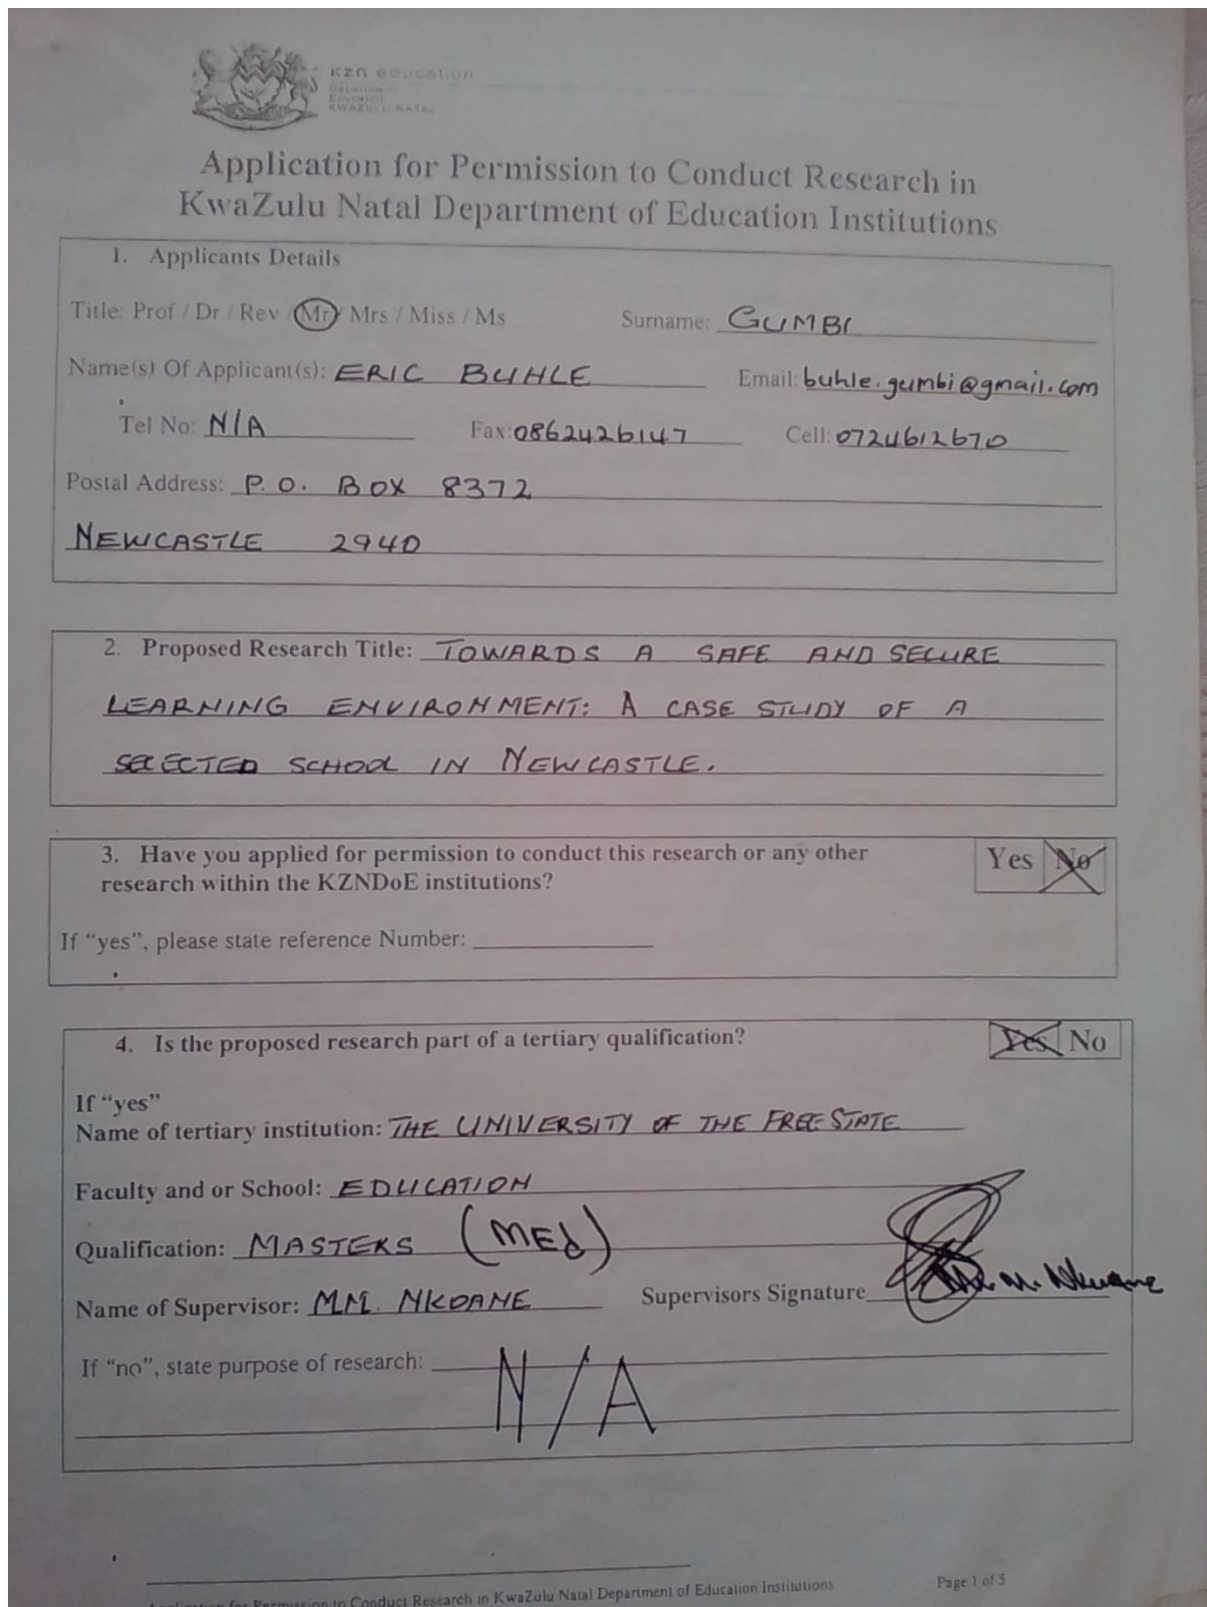 kzn education
Department:
Education
KWAZULU-NATAL
Application for Permission to Conduct Research in
KwaZulu Natal Department of Education Institutions
1. Applicants Details
Title: Prof / Dr / Rev / Mr / Mrs / Miss / Ms Surname: GUMBI
Name(s) Of Applicant(s): ERIC BUHLE Email: buhle.gumbi@gmail.com
Tel No: N/A Fax: 0862426147 Cell: 0724612670
Postal Address: P.O. BOX 8372
NEWCASTLE 2940
2. Proposed Research Title: TOWARDS A SAFE AND SECURE
LEARNING ENVIRONMENT: A CASE STUDY OF A
SELECTED SCHOOL IN NEWCASTLE.
3. Have you applied for permission to conduct this research or any other Yes No
research within the KZNDoE institutions?
If “yes”, please state reference Number:
4. Is the proposed research part of a tertiary qualification? Yes No
If “yes”
Name of tertiary institution: THE UNIVERSITY OF THE FREE STATE
Faculty and or School: EDUCATION
Qualification: MASTERS (MEd)
Name of Supervisor: MM. NKOANE Supervisors Signature M. Nkoane
If “no”, state purpose of research: N/A
Application for Permission to Conduct Research in KwaZulu Natal Department of Education Institutions Page 1 of 5